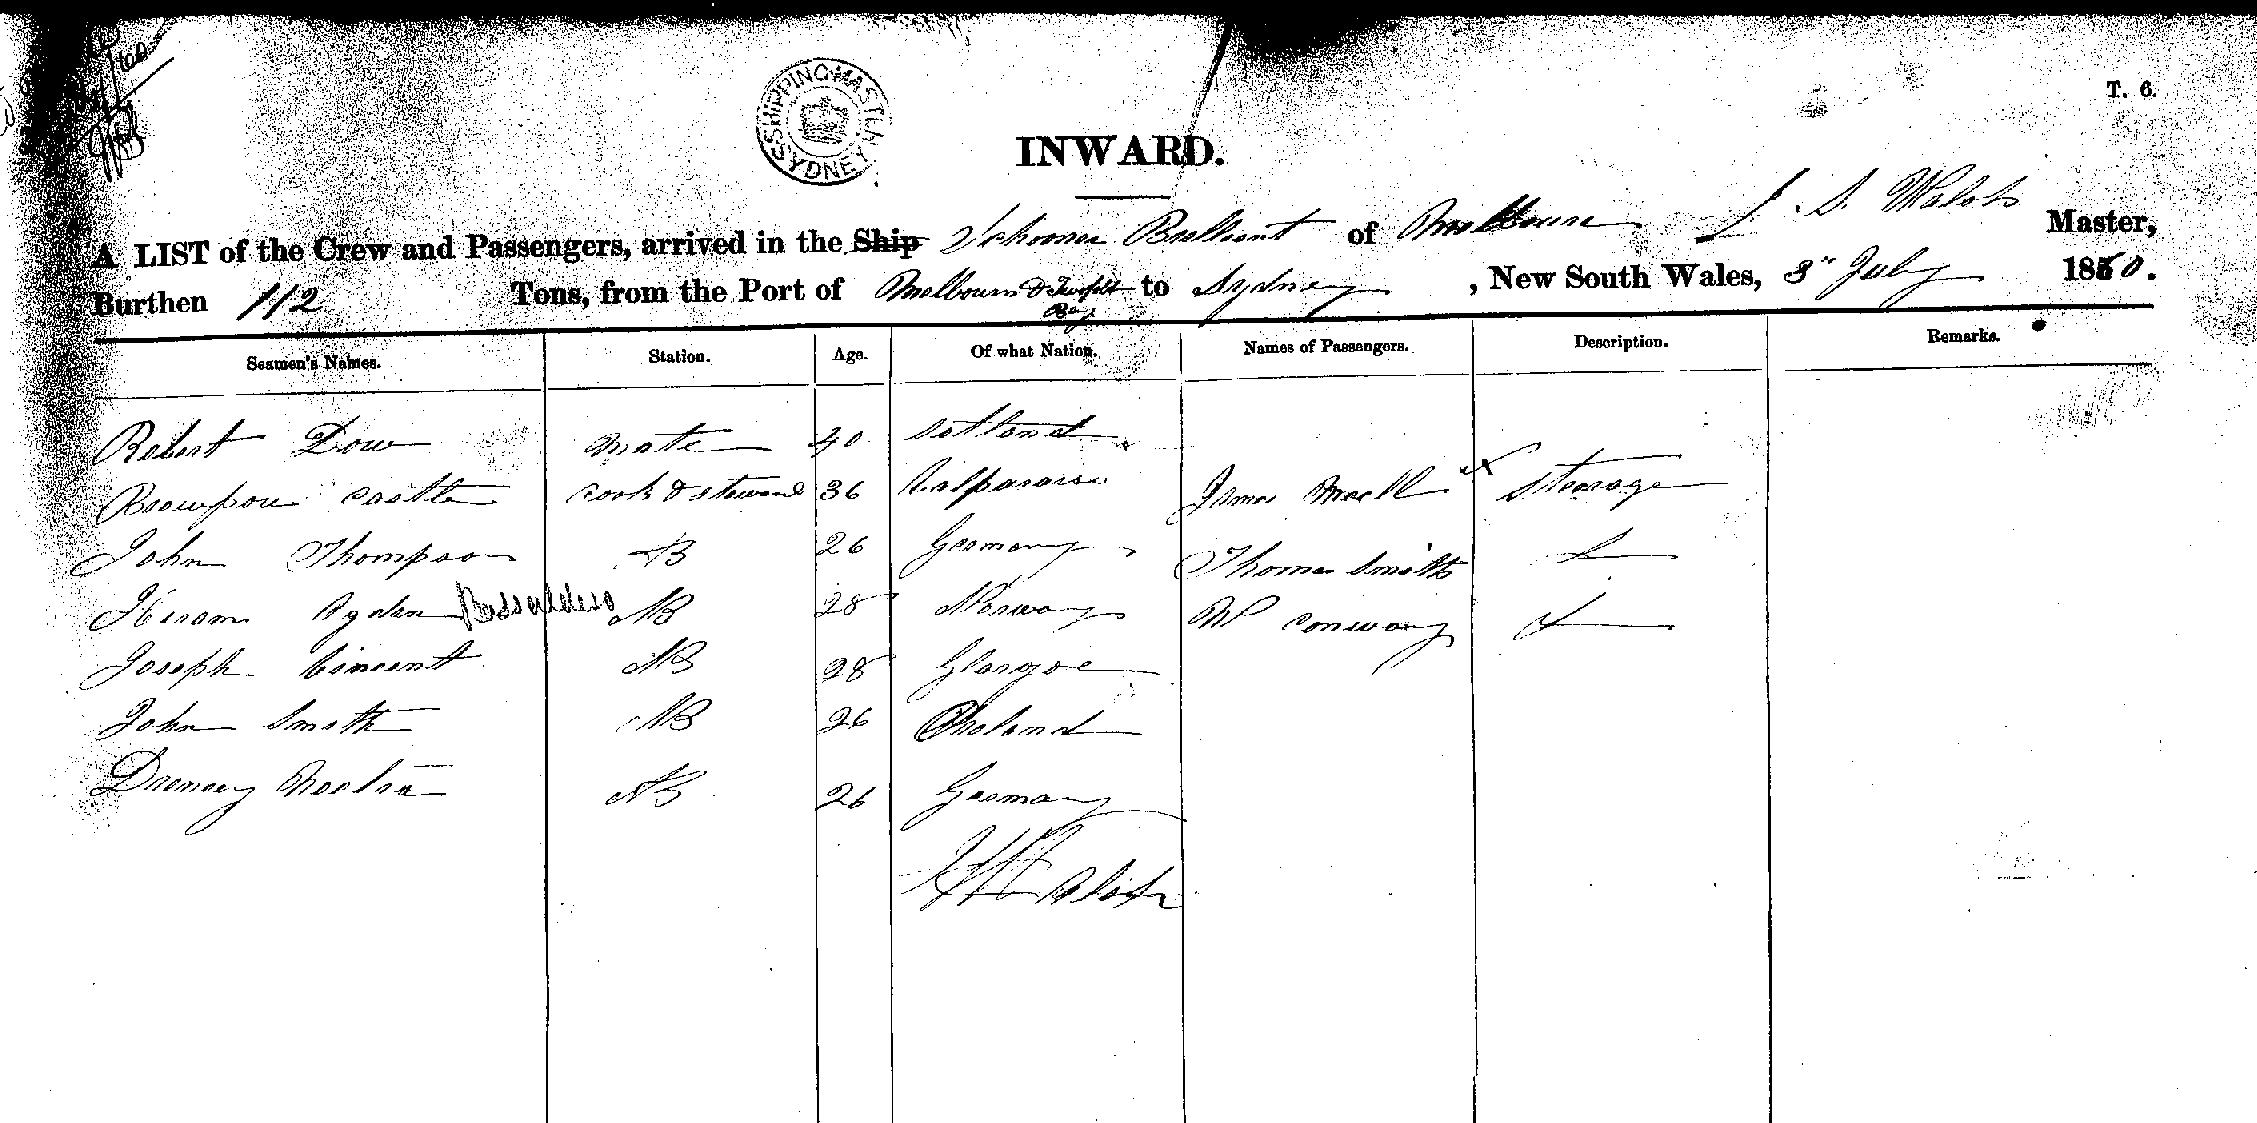 T. 6.
SHIPPING MASTER SYDNEY
INWARD.
A LIST of the Crew and Passengers, arrived in the Ship Schooner Brilliant of Melbourne S. Walsh Master,
Burthen 112 Tons, from the Port of Melbourn & Twofold Bay to Sydney, New South Wales, 3rd July 1860.
Seamen's Names. Station. Age. Of what Nation. Names of Passengers. Description. Remarks.
Robert Dow mate 40 Scotland
castle cook & steward 36 Valparaiso James steerage
John Thompson AB 26 Germany Thomas Smith
Hiram AB 28 Norway conway
Joseph Vincent AB 28 Glasgoe
John Smith AB 26
AB 26 Germany